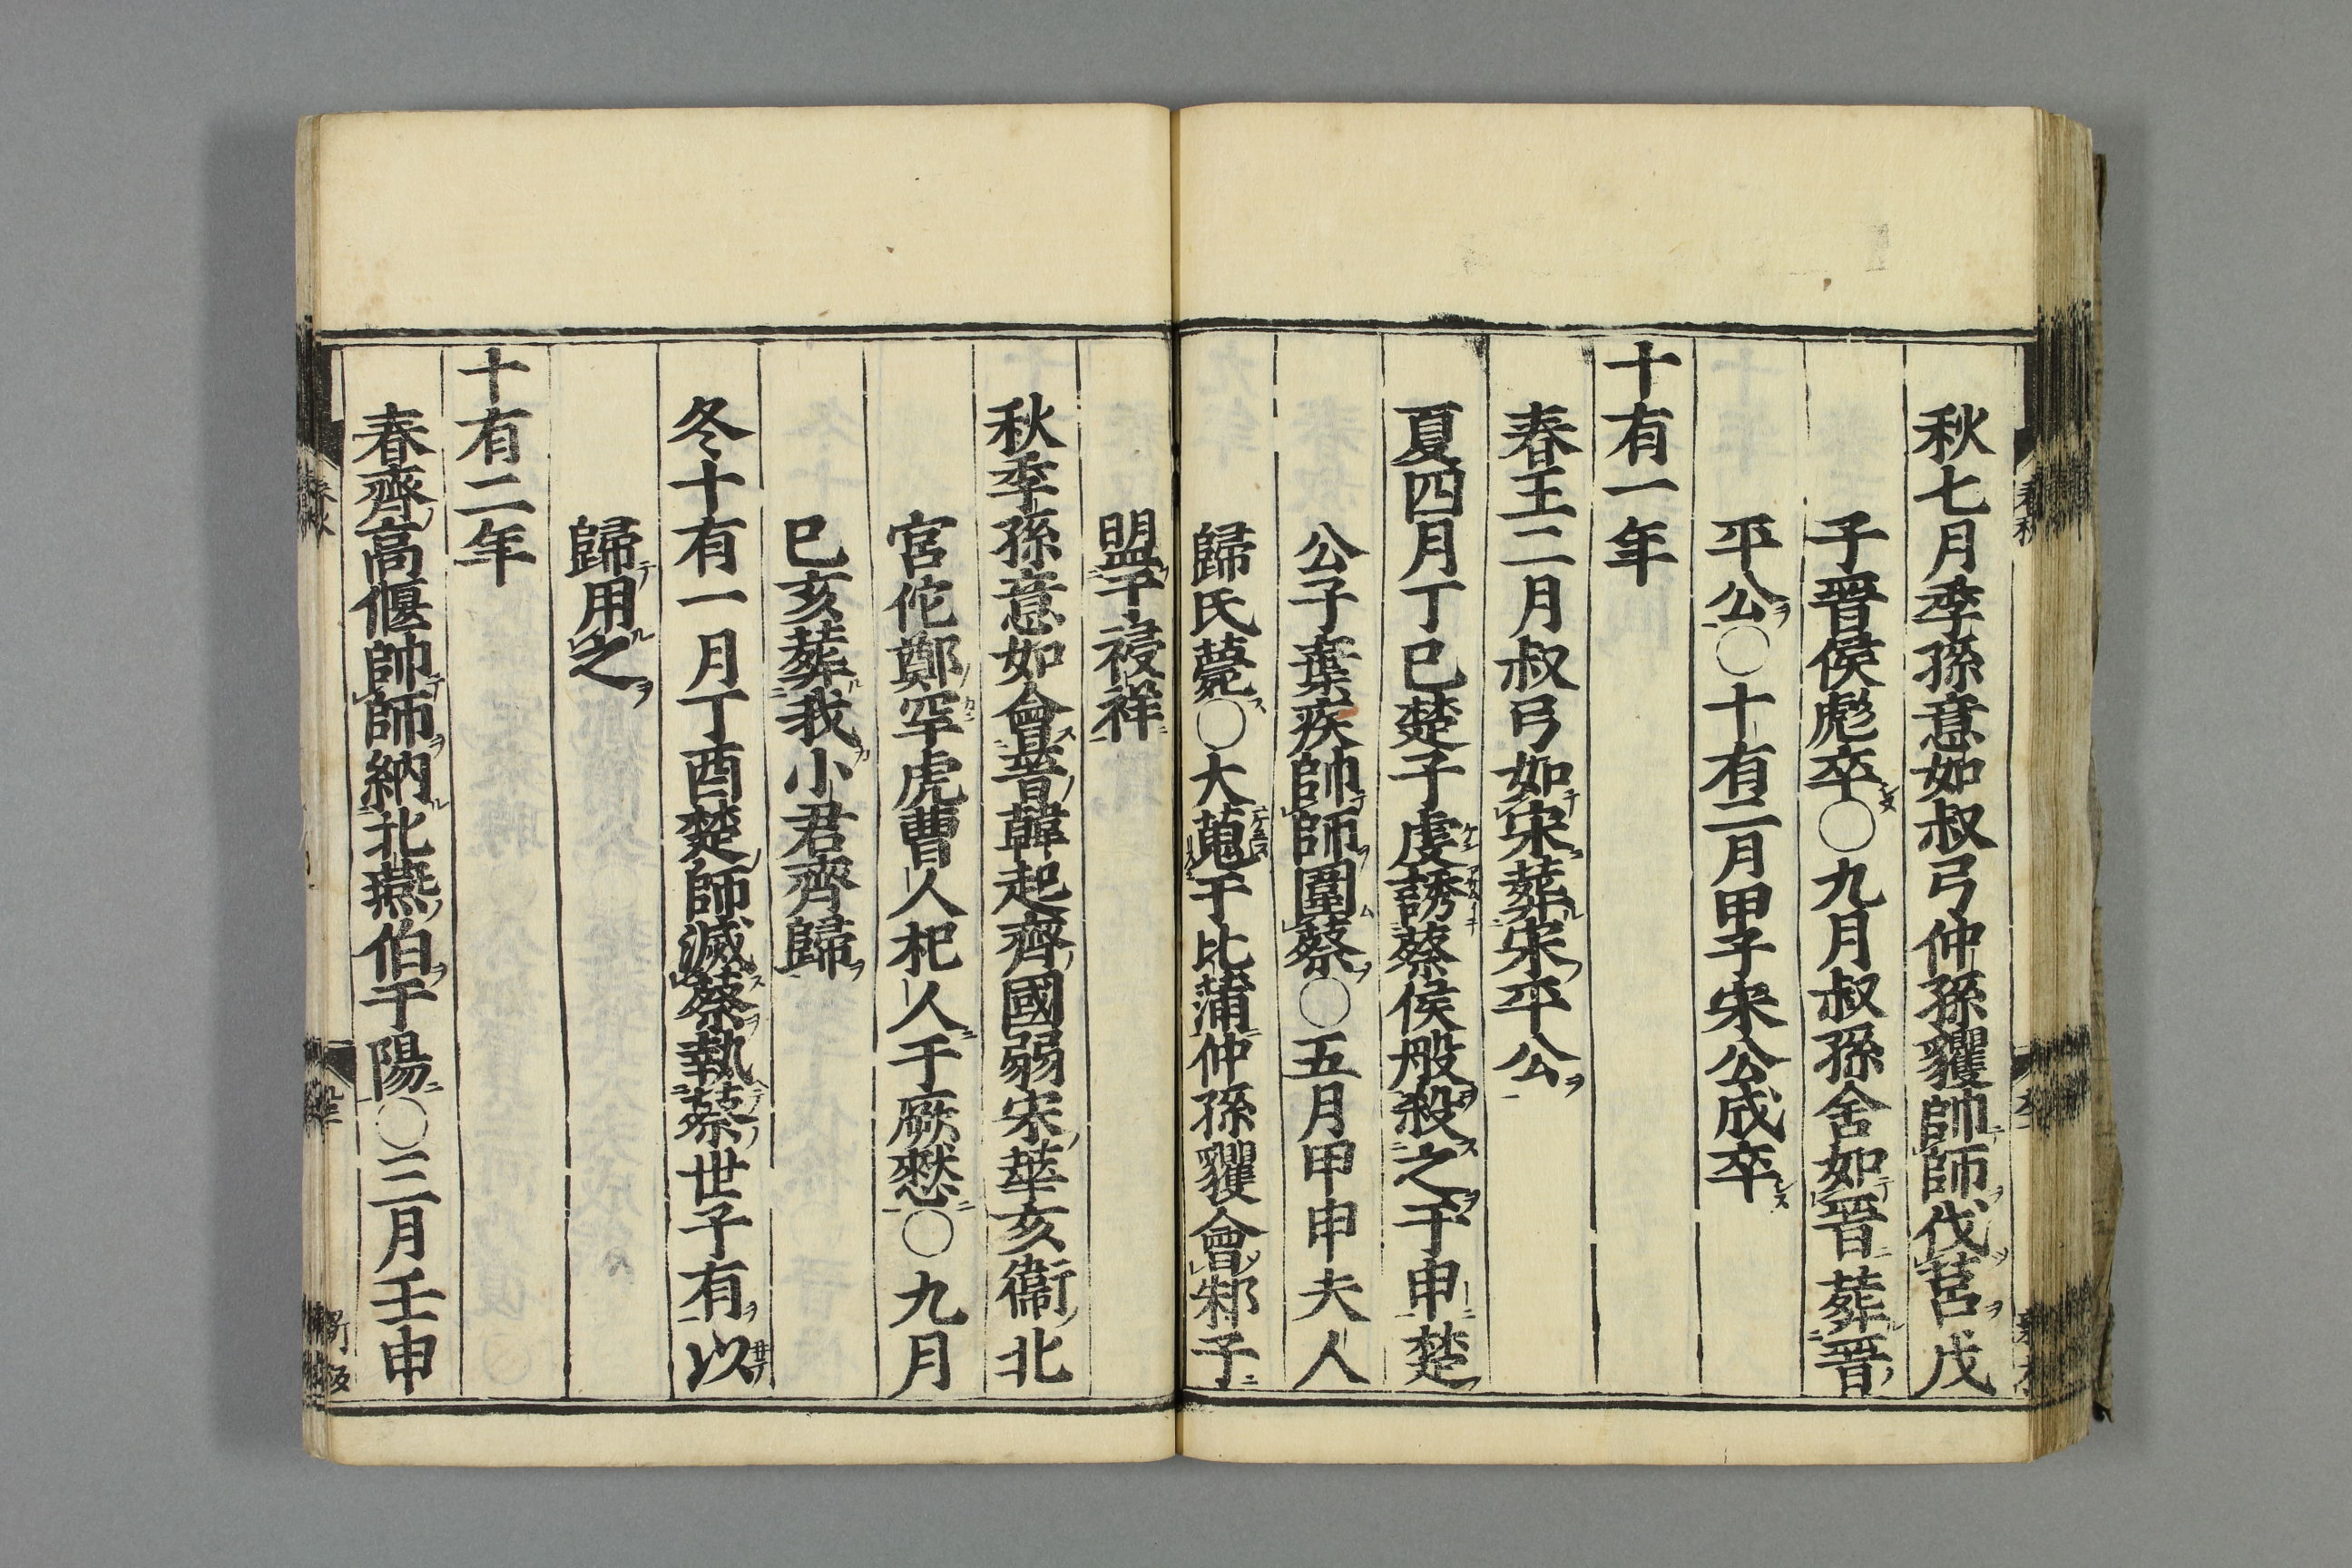 秋七月季孫意如叔弓仲孫貜帥師伐莒戊
子晉侯彪卒○九月叔孫舍如晉葬晉
平公○十有二月甲子宋公成卒
十有一年
春王二月叔弓如宋葬宋平公
夏四月丁巳楚子虔誘蔡侯般殺之于申楚
公子棄疾帥師圍蔡○五月甲申夫人
歸氏薨○大蒐于比蒲仲孫貜會邾子
盟于祲祥
秋季孫意如會晉韓起齊國弱宋華亥衞北
宮佗鄭罕虎曹人杞人于厥憖○九月
巳亥葬我小君齊歸
冬十有一月丁酉楚師滅蔡執蔡世子有以
歸用之
十有二年
春齊高偃帥師納北燕伯于陽○三月壬申